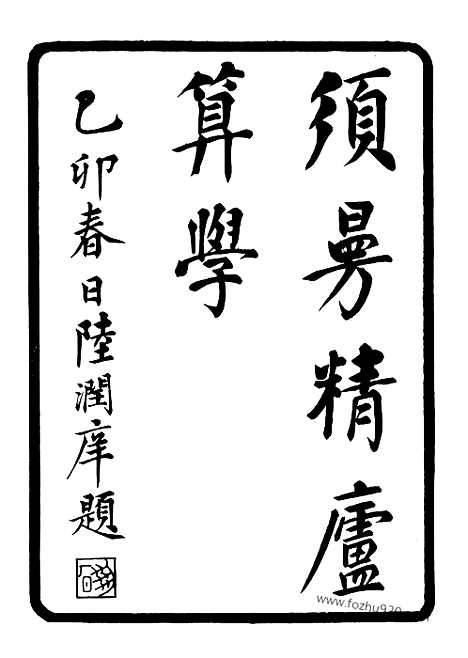 須曼精廬
算學
乙卯春日陸潤庠題
www.fozhu920